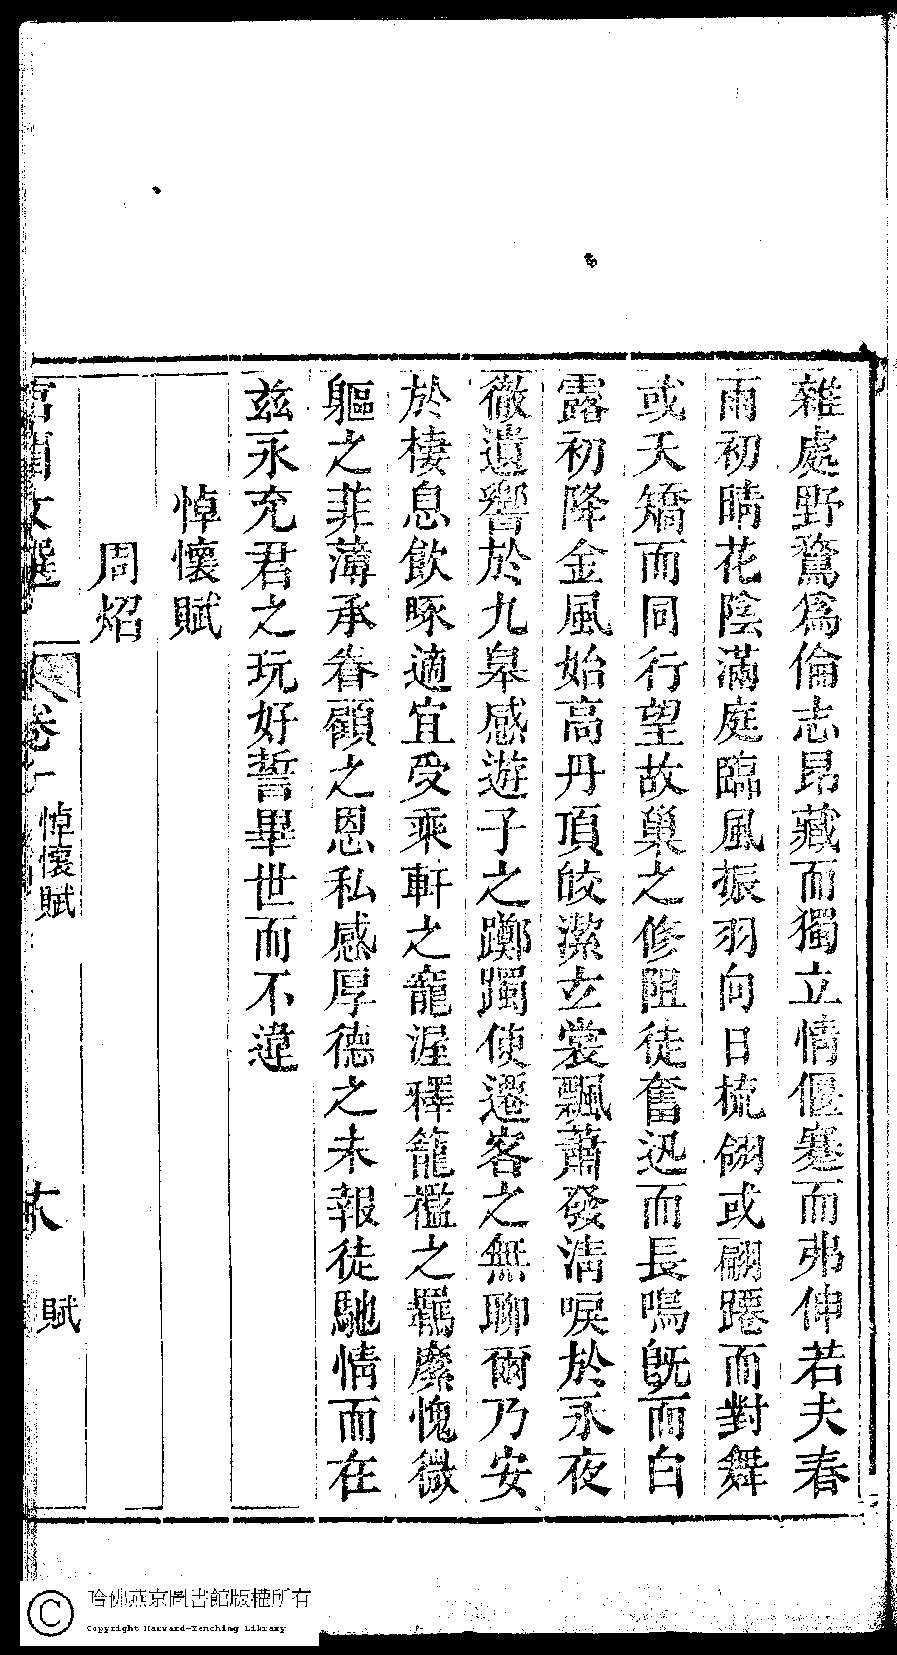 雜處野鶩爲倫志昂藏而獨立情偃蹇而弗伸若夫春
雨初晴花陰滿庭臨風振羽向日梳翎或翩躚而對舞
或夭矯而同行望故巢之修阻徒奮迅而長鳴旣而白
露初降金風始高丹頂皎潔玄裳飄蕭發淸唳於永夜
徹遺響於九皋感遊子之躑躅使遷客之無聊爾乃安
於棲息飲啄適宜受乘軒之寵渥釋籠檻之羈縻愧微
軀之菲薄承眷顧之恩私感厚德之未報徒馳情而在
茲永充君之玩好誓畢世而不違
悼懷賦
周炤
宮閨文選
卷一
悼懷賦
賦
哈佛燕京圖書館版權所有
Copyright Harvard-Yenching Library